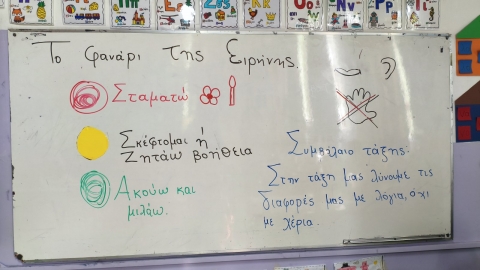 Το φανάρι της Ειρήνης
Σταματώ
Σκέφτομαι ή
Ζητάω βοήθεια
Ακούω και
μιλάω.
Συμβόλαιο τάξης.
Στην τάξη μας λύνουμε τις
διαφορές μας με λόγια, όχι
με χέρια.